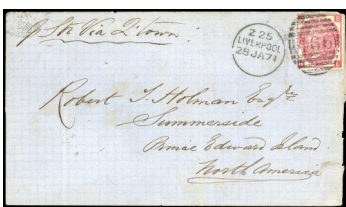 p Str Via Q'town.
Z 25
LIVERPOOL
28 JA 71
466
Robert T. Holman Esqre
Summerside
Prince Edward Island
North America